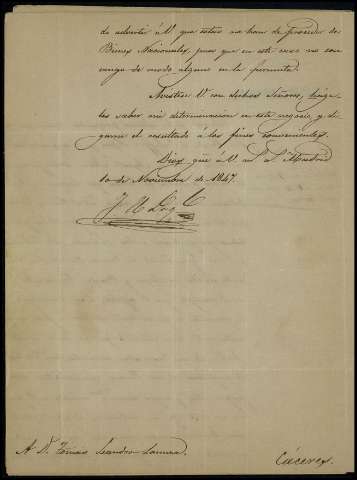 de advertir á V. que estas no han de proceder de
Bienes Nacionales, pues que en este caso no con
vengo de modo alguno en la permuta.
Avístese V. con dichos Señores, hága
les saber mi determinacion en este negocio, y dí
game el resultado á los fines convenientes.
Dios gue á V. m. a. Madrid
10 de Noviembre de 1847.
A D. Tomás Leandro
Cáceres.